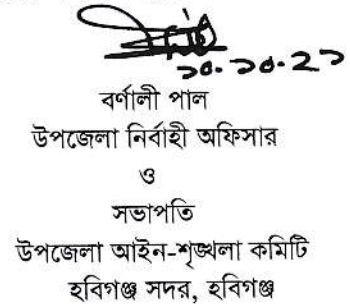 ১০.১০.২১
বর্ণালী পাল
উপজেলা নির্বাহী অফিসার
ও
সভাপতি
উপজেলা আইন-শৃঙ্খলা কমিটি
হবিগঞ্জ সদর, হবিগঞ্জ